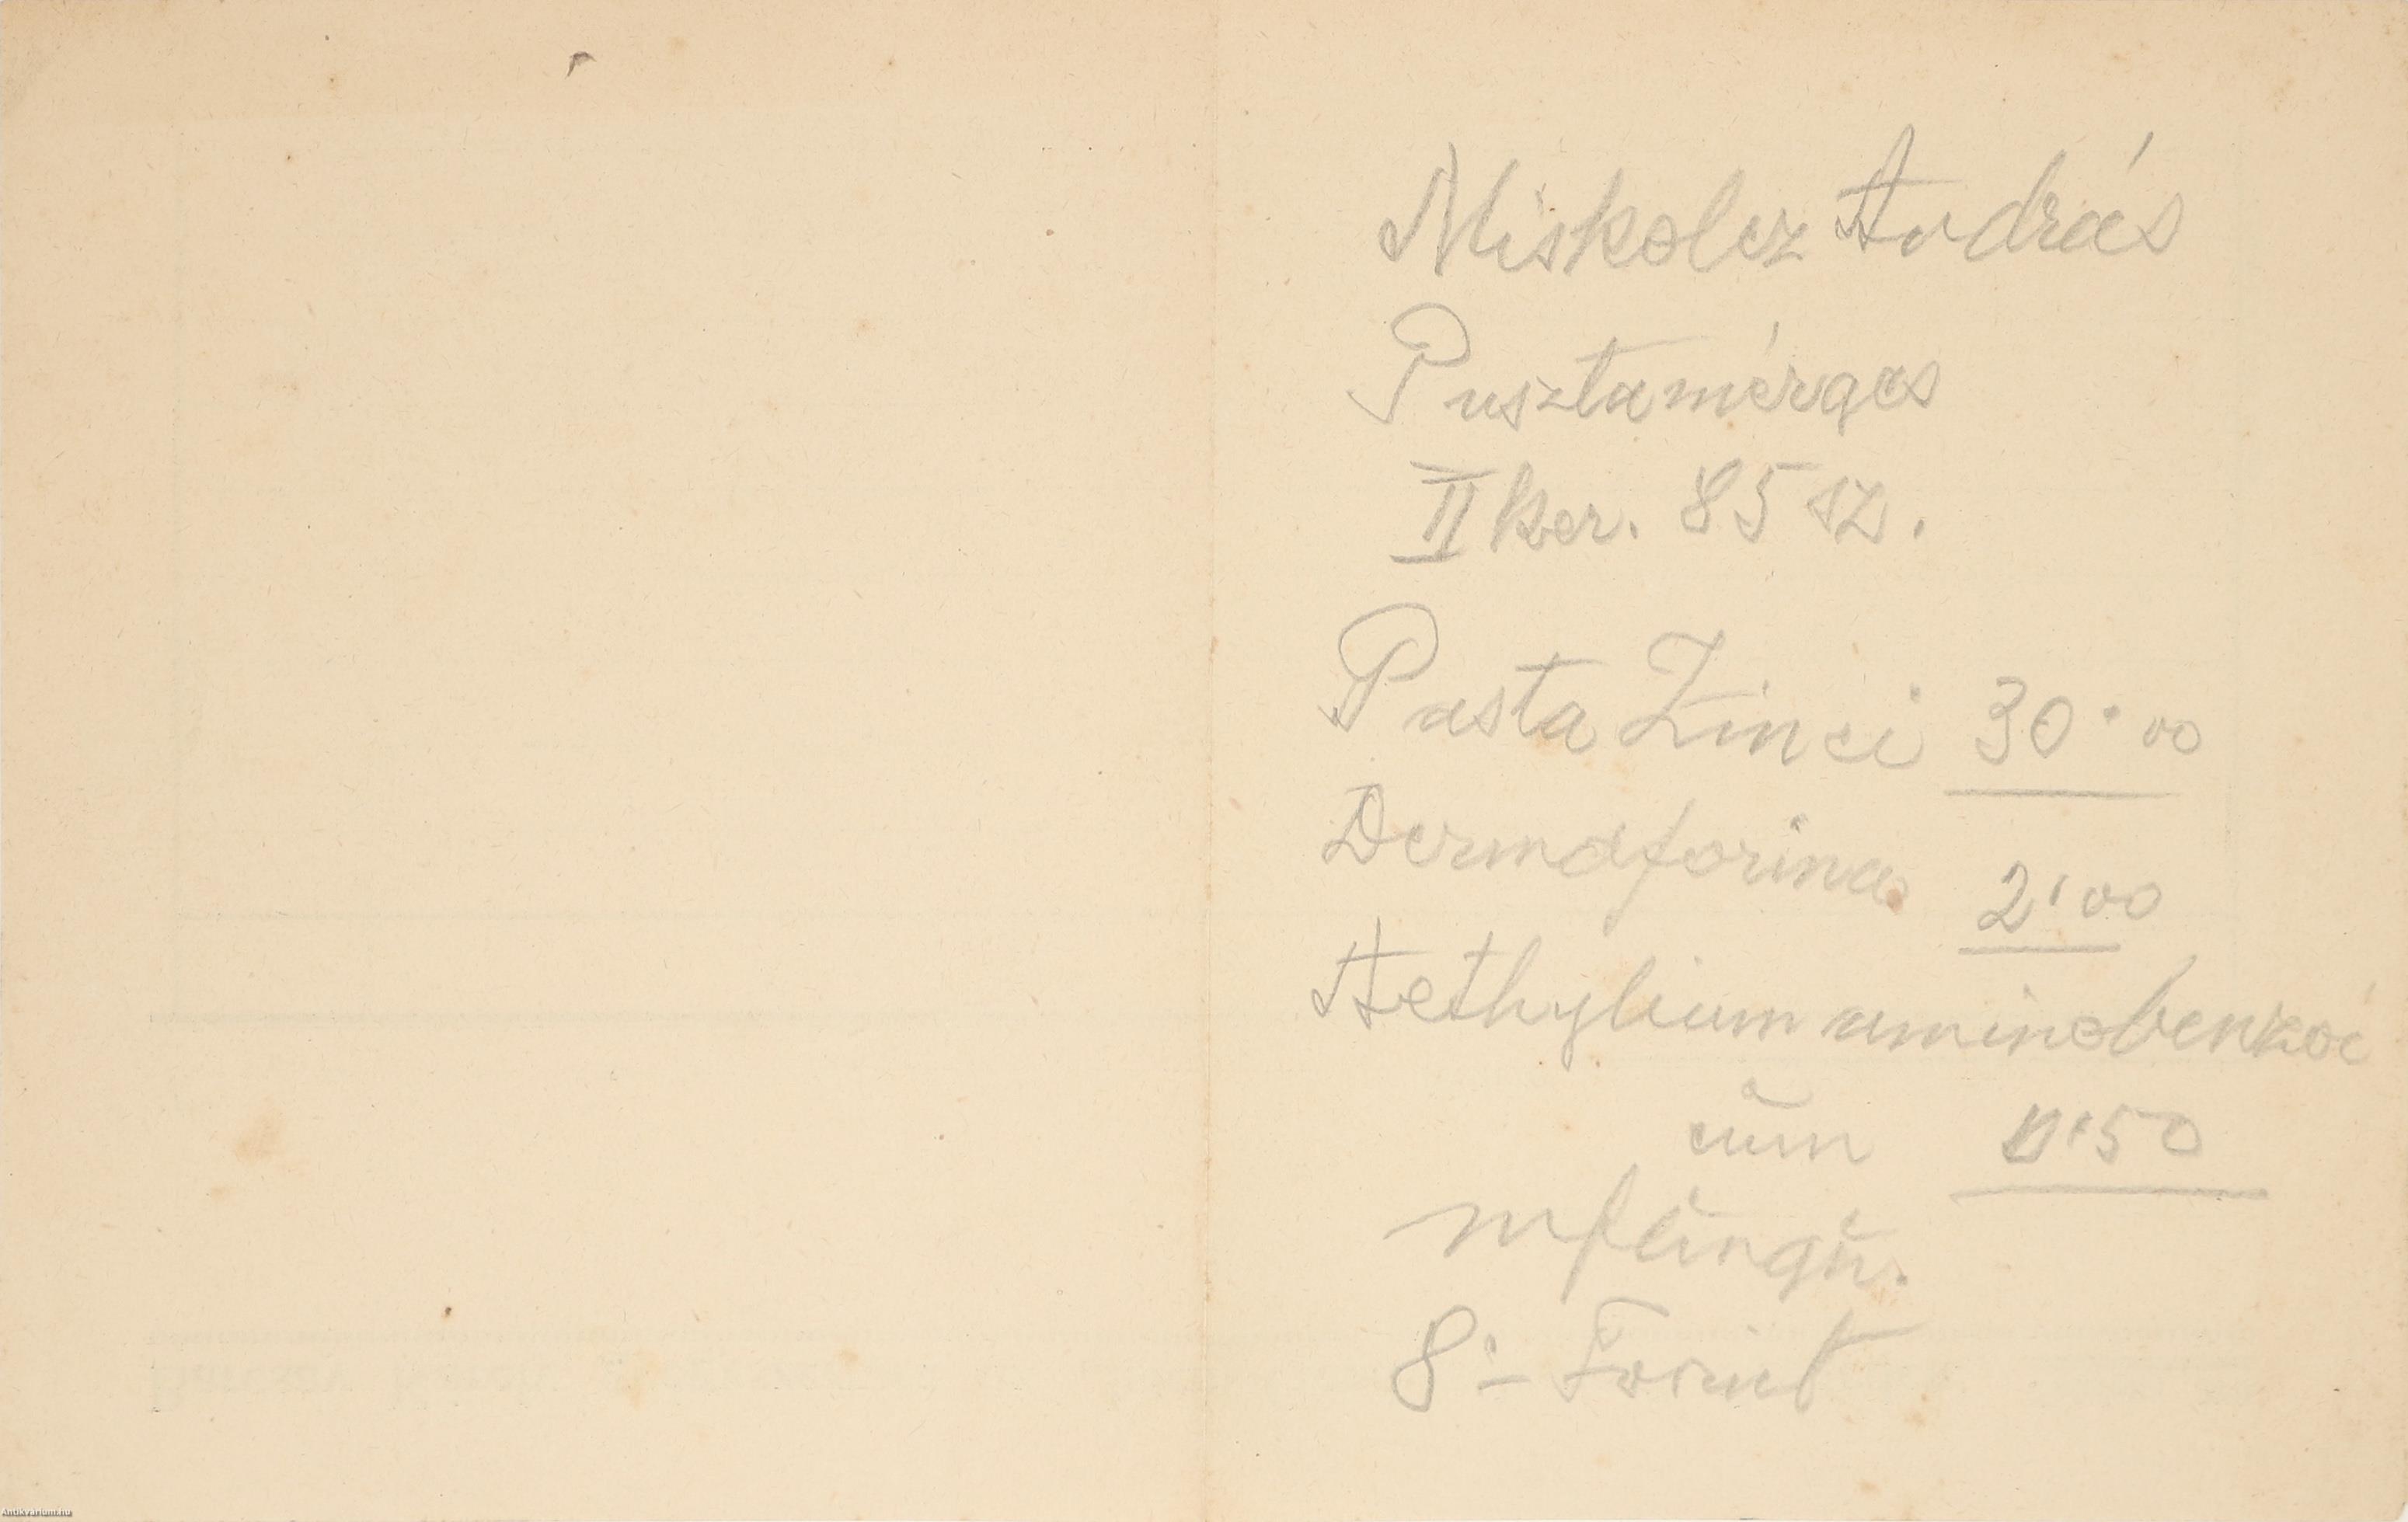 Miskolcz András
Pusztamérges
II ker. 85 sz.
Pasta Zinci 30·00
Dermaforina 2'00
Aethylium aminobenzoi
cum 0'50
mf ungu.
8·– Forint
Antikvarium.hu